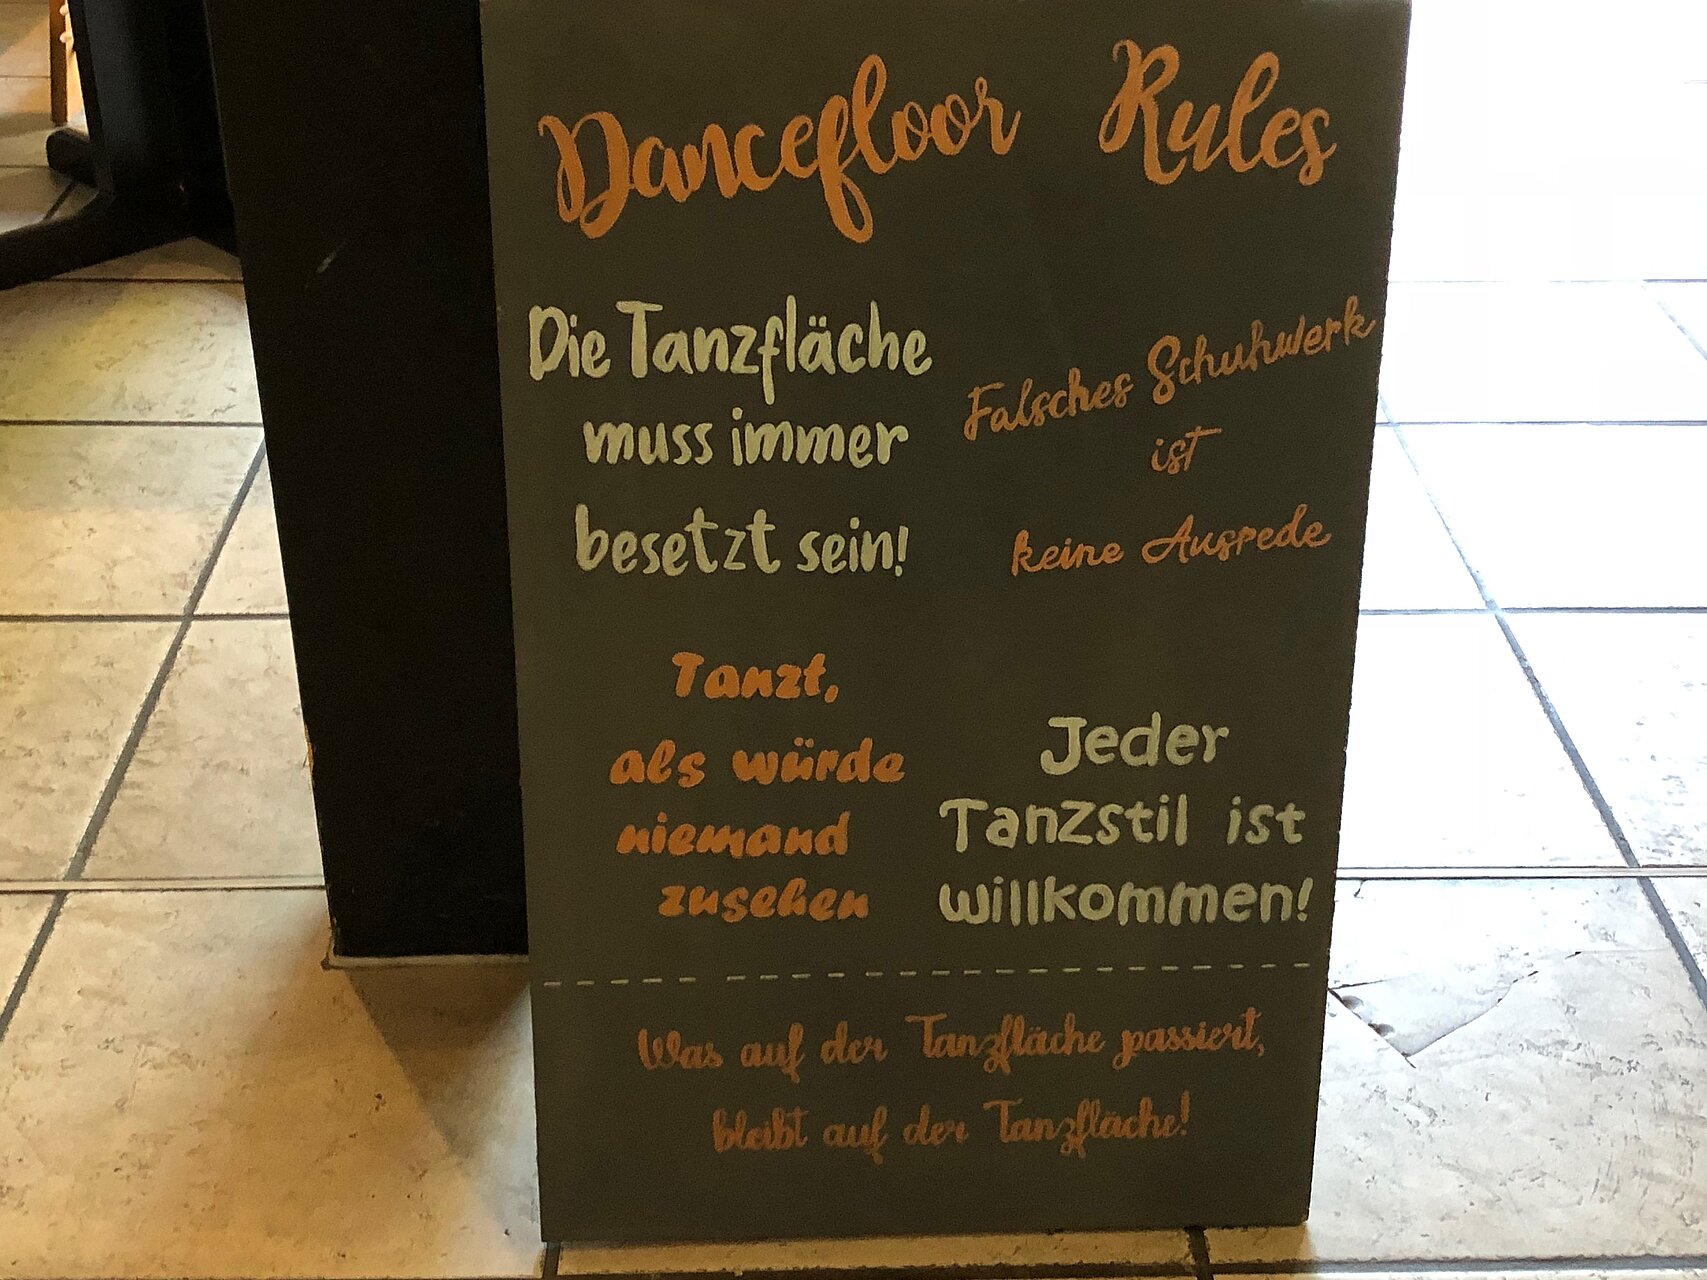 Dancefloor Rules
Die Tanzfläche
muss immer
besetzt sein!
Falsches Schuhwerk
ist
keine Ausrede
Tanzt,
als würde
niemand
zusehen
Jeder
Tanzstil ist
willkommen!
Was auf der Tanzfläche passiert,
bleibt auf der Tanzfläche!